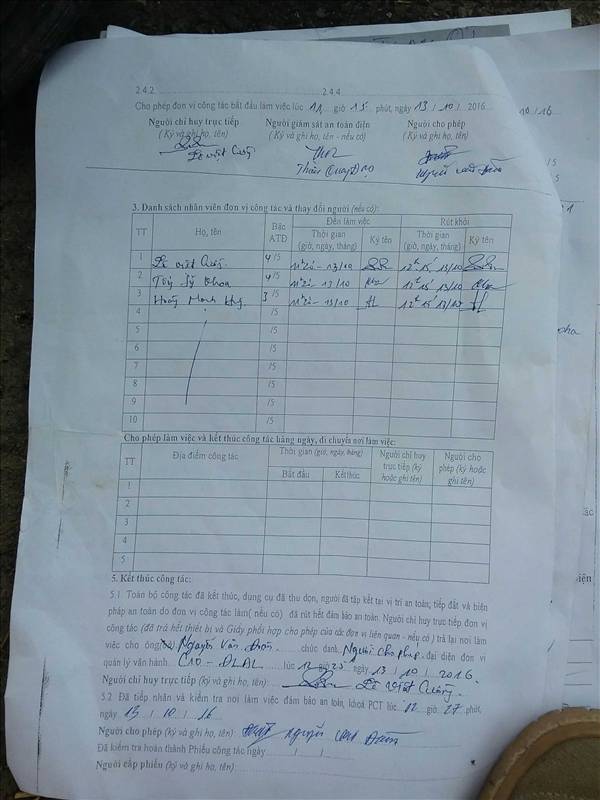 2.4.2 2.4.4
Cho phép đơn vị công tác bắt đầu làm việc lúc 11 giờ 15 phút, ngày 13 / 10 / 2016
Người chỉ huy trực tiếp Người giám sát an toàn điện Người cho phép
(Ký và ghi họ, tên) (Ký và ghi họ, tên - nếu có) (Ký và ghi họ, tên)
Lê Việt Cường
3. Danh sách nhân viên đơn vị công tác và thay đổi người (nếu có):
TT Họ, tên Bậc ATĐ Đến làm việc Rút khỏi
Thời gian (giờ, ngày, tháng) Ký tên Thời gian (giờ, ngày, tháng) Ký tên
1 Lê Việt Cường 4/5 13/10 12h15' 13/10
2 Sỹ Khoa 4/5 13/10 12h15' 13/10
3 Mạnh 3/5 13/10 12h15' 13/10
4 /5
5 /5
6 /5
7 /5
8 /5
9 /5
10 /5
Cho phép làm việc và kết thúc công tác hàng ngày, di chuyển nơi làm việc:
TT Địa điểm công tác Thời gian (giờ, ngày, tháng) Người chỉ huy trực tiếp (ký hoặc ghi tên) Người cho phép (ký hoặc ghi tên)
Bắt đầu Kết thúc
1
2
3
4
5
5. Kết thúc công tác:
5.1 Toàn bộ công tác đã kết thúc, dụng cụ đã thu dọn, người đã tập kết tại vị trí an toàn; tiếp đất và biện
pháp an toàn do đơn vị công tác làm( nếu có) đã rút hết đảm bảo an toàn. Người chỉ huy trực tiếp đơn vị
công tác (đã trả hết thiết bị và Giấy phối hợp cho phép của các đơn vị liên quan - nếu có ) trả lại nơi làm
việc cho ông(bà) Nguyễn Văn chức danh Người cho phép đại diện đơn vị
quản lý vận hành C10 - ĐLAL lúc 12 giờ 25 ngày 13 / 10 / 2016
Người chỉ huy trực tiếp (ký và ghi họ, tên): Lê Việt Cường
5.2 Đã tiếp nhận và kiểm tra nơi làm việc đảm bảo an toàn, khoá PCT lúc 12 giờ 27 phút,
ngày 13 / 10 / 16
Người cho phép (ký và ghi họ, tên): Nguyễn Văn
Đã kiểm tra hoàn thành Phiếu công tác ngày / /
Người cấp phiếu (ký và ghi họ, tên):